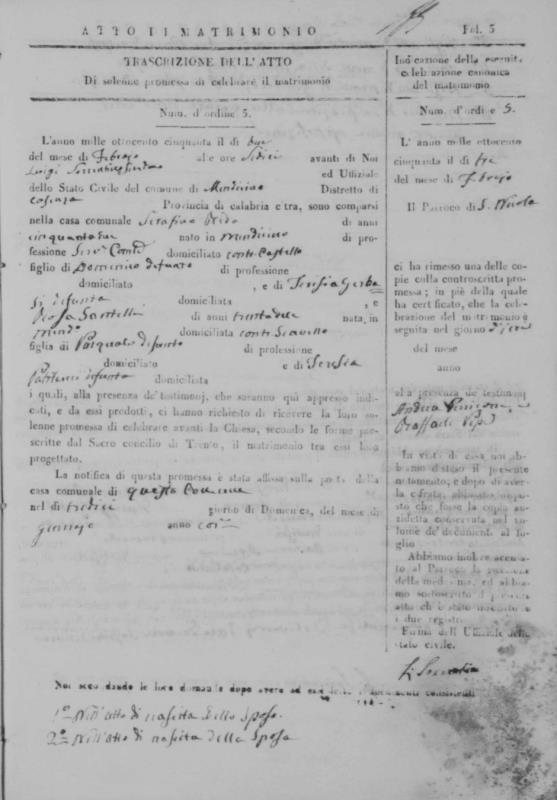 ATTO DI MATRIMONIO
Fol. 3
TRASCRIZIONE DELL'ATTO
Di solenne promessa di celebrare il matrimonio
Num. d'ordine 5.
L'anno mille ottocento cinquanta il di due
del mese di Febrajo alle ore Sedici avanti di Noi
Luigi ed Uffiziale
dello Stato Civile del comune di Mendicino Distretto di
Cosenza Provincia di calabria citra, sono comparsi
nella casa comunale Serafino di anni
cinquantadue nato in Mendicino di pro-
fessione domiciliato Castello
figlio di Domenico defunto di professione
domiciliato , e di Teresia
defunta domiciliata , e
Rosa Santelli di anni trentadue nata in
domiciliata
figlia di Pasquale defunto di professione
domiciliato e di Teresia
defunta domiciliata
i quali, alla presenza de' testimonj, che saranno quì appresso indi-
cati, e da essi prodotti, ci hanno richiesto di ricevere la loro so-
lenne promessa di celebrare avanti la Chiesa, secondo le forme pre-
scritte dal Sacro concilio di Trento, il matrimonio tra essi loro
progettato.
La notifica di questa promessa è stata affissa sulla porta della
casa comunale di questo Comune
nel di tredici giorno di Domenica, del mese di
Gennajo anno
Indicazione della seguita
celebrazione canonica
del matrimonio
Num. d'ordine 5.
L' anno mille ottocento
cinquanta il di tre
del mese di Febrajo
Il Parroco di S. Nicola
ci ha rimesso una delle co-
pie colla controscritta pro-
messa; in piè della quale
ha certificato, che la cele-
brazione del matrimonio è
seguita nel giorno
del mese
anno
alla presenza de testimonj
Andrea
Raffaele
In vista di essa noi ab-
biamo disteso il presente
notamento, e dopo di aver-
la cifrata, abbiamo dispo-
sto che fosse la copia an-
zidetta conservata nel vo-
lume de' documenti al fo-
glio
Abbiamo inoltre accusa-
to al Parroco la ricezione
della medesima, ed abbia-
mo sottoscritto il presente
atto ch'è stato inscritto su
i due registri.
Firma dell' Uffiziale dello
stato civile.
Noi secondando le loro domande dopo avere ad essi letti i documenti consistenti
1º Nell'atto di nascita dello Sposo.
2º Nell'atto di nascita della Sposa